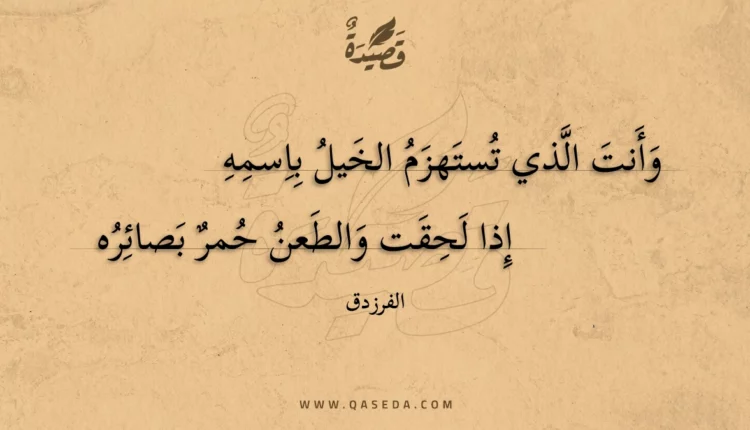 قَصِيْدَةٌ
وَأَنتَ الَّذي تُستَهزَمُ الخَيلُ بِاِسمِهِ
إِذا لَحِقَت وَالطَعنُ حُمرٌ بَصائِرُه
الفرزدق
WWW.QASEDA.COM